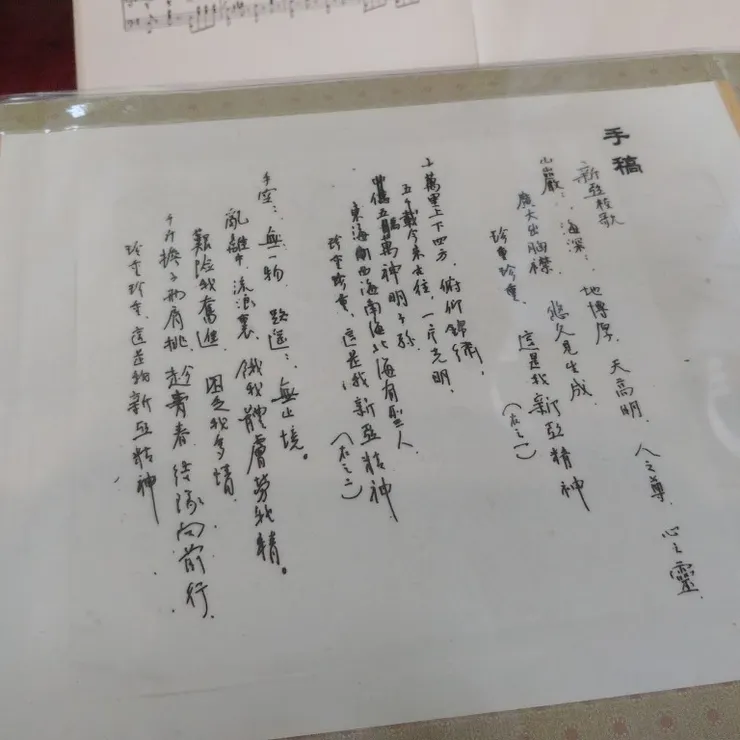 手稿
新亞校歌
山巖：，海深：，地博厚，天高明，人之尊，心之靈，
廣大出胸襟，悠久見生成。
珍重珍重，這是我新亞精神
（右之一）
十萬里上下四方，俯仰錦繡，
五千載今來古往，一片光明，
萬神明子孫
東海西海南海北海有聖人
珍重珍重，這是我新亞精神
（右之二）
手空：，無一物，路遙：，無止境。
亂離中，流浪裏，餓我體膚勞我精。
艱險我奮進，困乏我多情
千斤擔子兩肩挑，趁青春，結隊向前行，
珍重珍重，這是我新亞精神